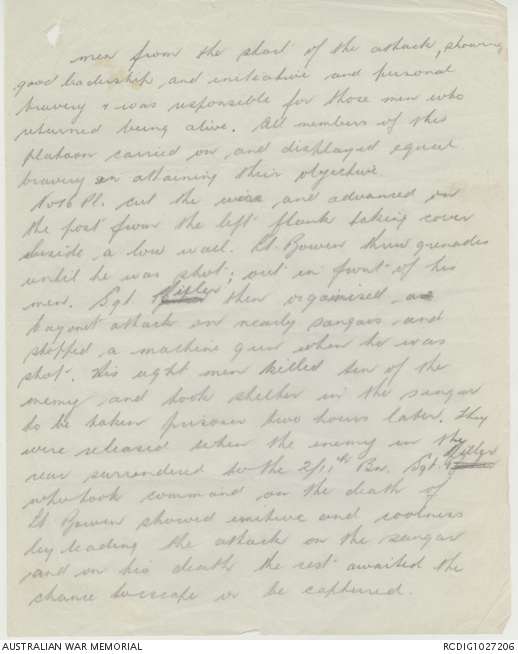 men from the start of the attack, showing
good leadership and initiative and personal
bravery & was responsible for those men who
returned being alive. All members of this
platoon carried on and displayed equal
bravery in attaining their objective.
No 16 Pl. cut the wire and advanced on
the post from the left flank taking cover
beside a low wall. Lt. Bowen threw grenades
until he was shot; out in front of his
men. Sgt Miller then organised a
bayonet attack on nearby sangars and
stopped a machine gun when he was
shot. His eight men killed ten of the
enemy and took shelter in the sangar
to be taken prisoner two hours later. They
were released when the enemy in the
rear surrendered to the 2/11th Bn. Sgt. Miller
who took command on the death of
Lt Bowen showed initive and coolness
by leading the attack on the sangar
and on his death the rest awaited the
chance to escape or be captured.
AUSTRALIAN WAR MEMORIAL
RCDIG1027206